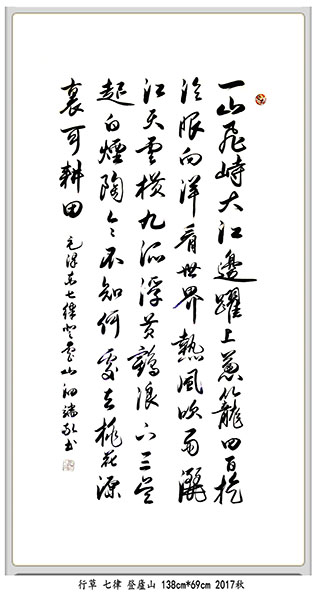 一山飛峙大江邊躍上蔥籠四百旋
冷眼向洋看世界熱風吹雨灑
江天雲橫九派浮黃鶴浪下三吳
起白煙陶令不知何處去桃花源
裏可耕田
毛澤東七律登廬山 書
行草 七律 登廬山 138cm*69cm 2017秋